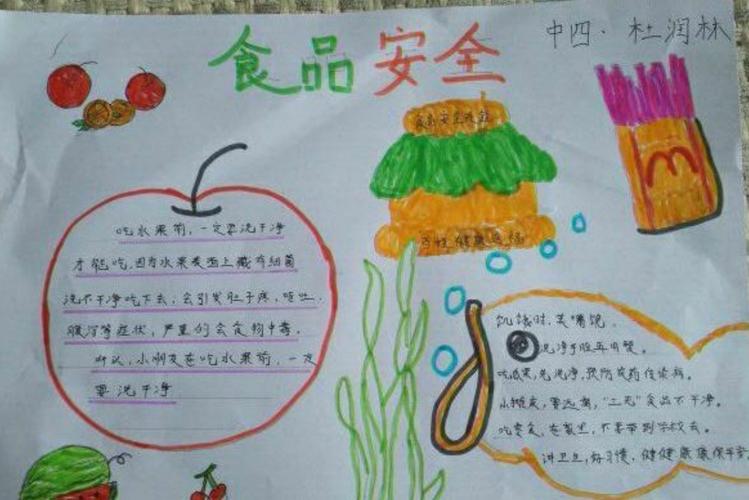 食品安全
中四·杜润林
食品安全没盖
百姓健康
吃水果前，一定要洗干净
才能吃，因为水果表面上藏有细菌
洗不干净吃下去，会引发肚子疼，呕吐，
腹泻等症状，严重的会食物中毒。
所以，小朋友在吃水果前，一定
要洗干净
M
饥饿时，美嘴馋，
洗净手脸再用餐。
吃瓜果，先洗净，预防
小摊皮，要远离，"三无"食品不干净。
吃零食，在家里，不要带到学校去。
讲卫生，好习惯，健健康康保平安